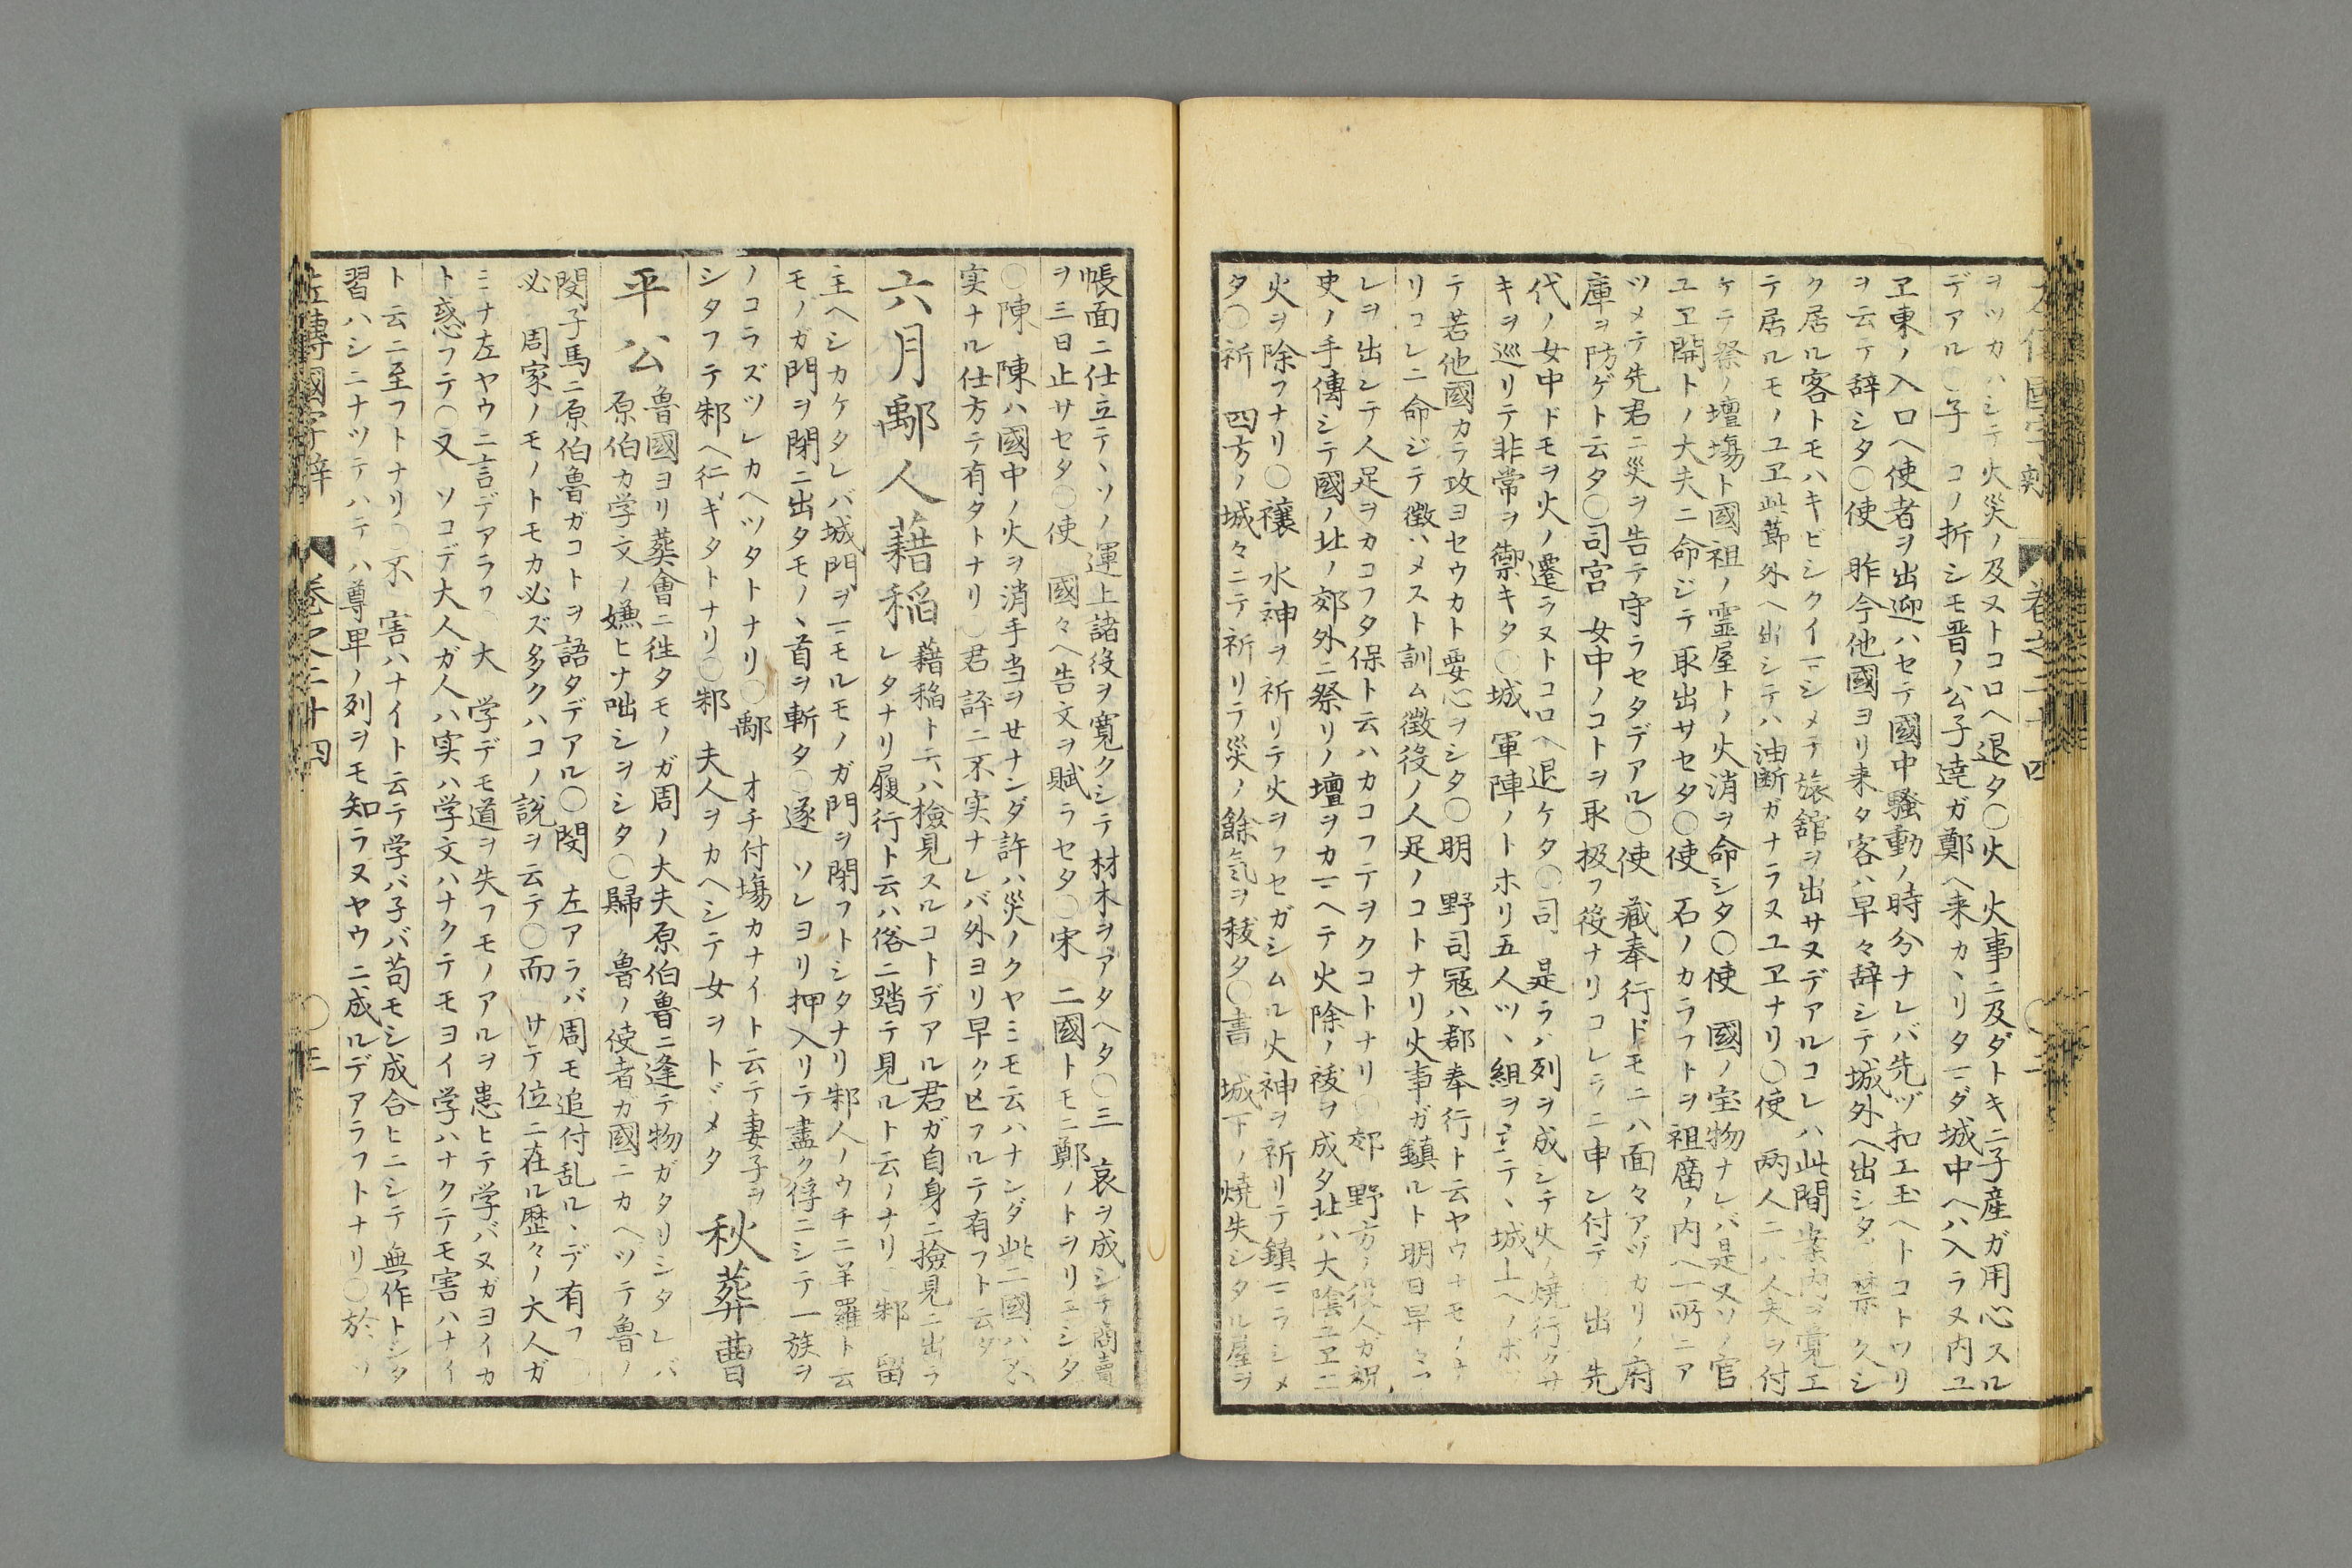 ヲツカハシテ火災ノ及ヌトコロヘ退タ〇火 火事ニ及ダトキニ子産ガ用心スル
デアル〇子 コノ折シモ晋ノ公子 ガ鄭ヘ来カヽリタマダ城中ヘハ入ラヌ内ユ
ヱ東ノ入口ヘ使者ヲ出迎ハセテ國中騒動ノ時分ナレバ先ヅ扣エ玉ヘトコトワリ
ヲ云テ辞シタ〇使 昨今他國ヨリ来タ客ハ早々辞シテ城外ヘ出シタ 禁 久シ
ク居ル客トモハキビシクイマシメテ旅舘ヲ出サヌデアルコレハ此間案内ヲ覚エ
テ居ルモノユヱ此節外ヘ出シテハ油断ガナラヌユヱナリ〇使 両人ニハ人夫ヲ付
ケテ祭ノ壇塲ト國祖ノ霊屋トノ火消ヲ命シタ〇使 國ノ宝物ナレバ是又ソノ官
ユヱ開トノ大夫ニ命ジテ取出サセタ〇使 石ノカラフトヲ祖庿ノ内ヘ一所ニア
ツメテ先君ニ災ヲ告テ守ラセタデアル〇使 蔵奉行ドモニハ面々アヅカリノ府
庫ヲ防ゲト云タ〇司宮 女中ノコトヲ取扱フ役ナリコレラニ申シ付テ 出 先
代ノ女中ドモヲ火ノ遷ラヌトコロヘ退ケタ〇司 是ラハ列ヲ成シテ火ノ焼行クサ
キヲ巡リテ非常ヲ禦キタ〇城 軍陣ノトホリ五人ツヽ組ヲ立テヽ城上ヘノホ
テ若他國カラ攻ヨセウカト要心ヲシタ〇明 野司寇ハ郡奉行ト云ヤウナモノ
リコレニ命ジテ徴ハメスト訓ム徴役ノ人足ノコトナリ火事ガ鎮ルト明日早々
レヲ出シテ人足ヲカコフタ保ト云ハカコフテヲクコトナリ〇郊 野方ノ役人カ祝
史ノ手傳シテ國ノ北ノ郊外ニ祭リノ壇ヲカマヘテ火除ノ祓ヲ成タ北ハ大陰ユヱニ
火ヲ除フナリ〇禳 水神ヲ祈リテ火ヲフセガシムル火神ヲ祈リテ鎮マラシメ
タ〇祈 四方ノ城々ニテ祈リテ災ノ餘気ヲ秡タ〇書 城下ノ焼失シタル屋ヲ
帳面ニ仕立テヽソノ運上諸役ヲ寛クシテ材木ヲアタヘタ〇三 哀ヲ成シテ商賣
ヲ三日止サセタ〇使 國々ヘ告文ヲ賦ラセタ〇宋 二國トモニ鄭ノトヲリニシタ
〇陳 陳ハ國中ノ火ヲ消手当ヲせナンダ許ハ災ノクヤミモ云ハナンダ此二國ハ不
実ナル仕方テ有タトナリ〇君 許ニ不実ナレバ外ヨリ早ク亡フルテ有フト云タ
六月鄅人藉稲 藉稲ト云ハ撿見スルコトデアル君ガ自身ニ撿見ニ出ラ
レタナリ履行ト云ハ俗ニ踏テ見ルト云ノナリ 邾 留
主ヘシカケタレバ城門ヲマモルモノガ門ヲ閉フトシタナリ邾人ノウチニ羊羅ト云
モノガ門ヲ閉ニ出タモノヽ首ヲ斬タ〇遂 ソレヨリ押入リテ盡ク俘ニシテ一族ヲ
ノコラズツレカヘツタトナリ〇鄅 オチ付塲カナイト云テ妻子ヲ
シタフテ邾ヘ行キタトナリ〇邾 夫人ヲカヘシテ女ヲトドメタ 秋葬曹
平公 魯國ヨリ葬會ニ徃タモノガ周ノ大夫原伯魯ニ逢テ物ガタリシタレバ
原伯カ学文ノ嫌ヒナ咄シヲシタ〇歸 魯ノ使者ガ國ニカヘツテ魯ノ
閔子馬ニ原伯魯ガコトヲ語タデアル〇閔 左アラバ周モ追付乱ルヽデ有フ
必 周家ノモノトモカ必ズ多クハコノ説ヲ云テ〇而 サテ位ニ在ル歴々ノ大人ガ
ミナ左ヤウニ言デアラフ 大 学デモ道ヲ失フモノアルヲ患ヒテ学バヌガヨイカ
ト惑フテ〇又 ソコデ大人ガ人ハ実ハ学文ハナクテモヨイ学ハナクテモ害ハナイ
ト云ニ至フトナリ〇不 害ハナイト云テ学バ子バ苟モシ成合ヒニシテ無作トシタ
習ハシニナツテハテハ尊卑ノ列ヲモ知ラヌヤウニ成ルデアラフトナリ〇於 ソ
左傳國字辯 巻之二十四 〇三